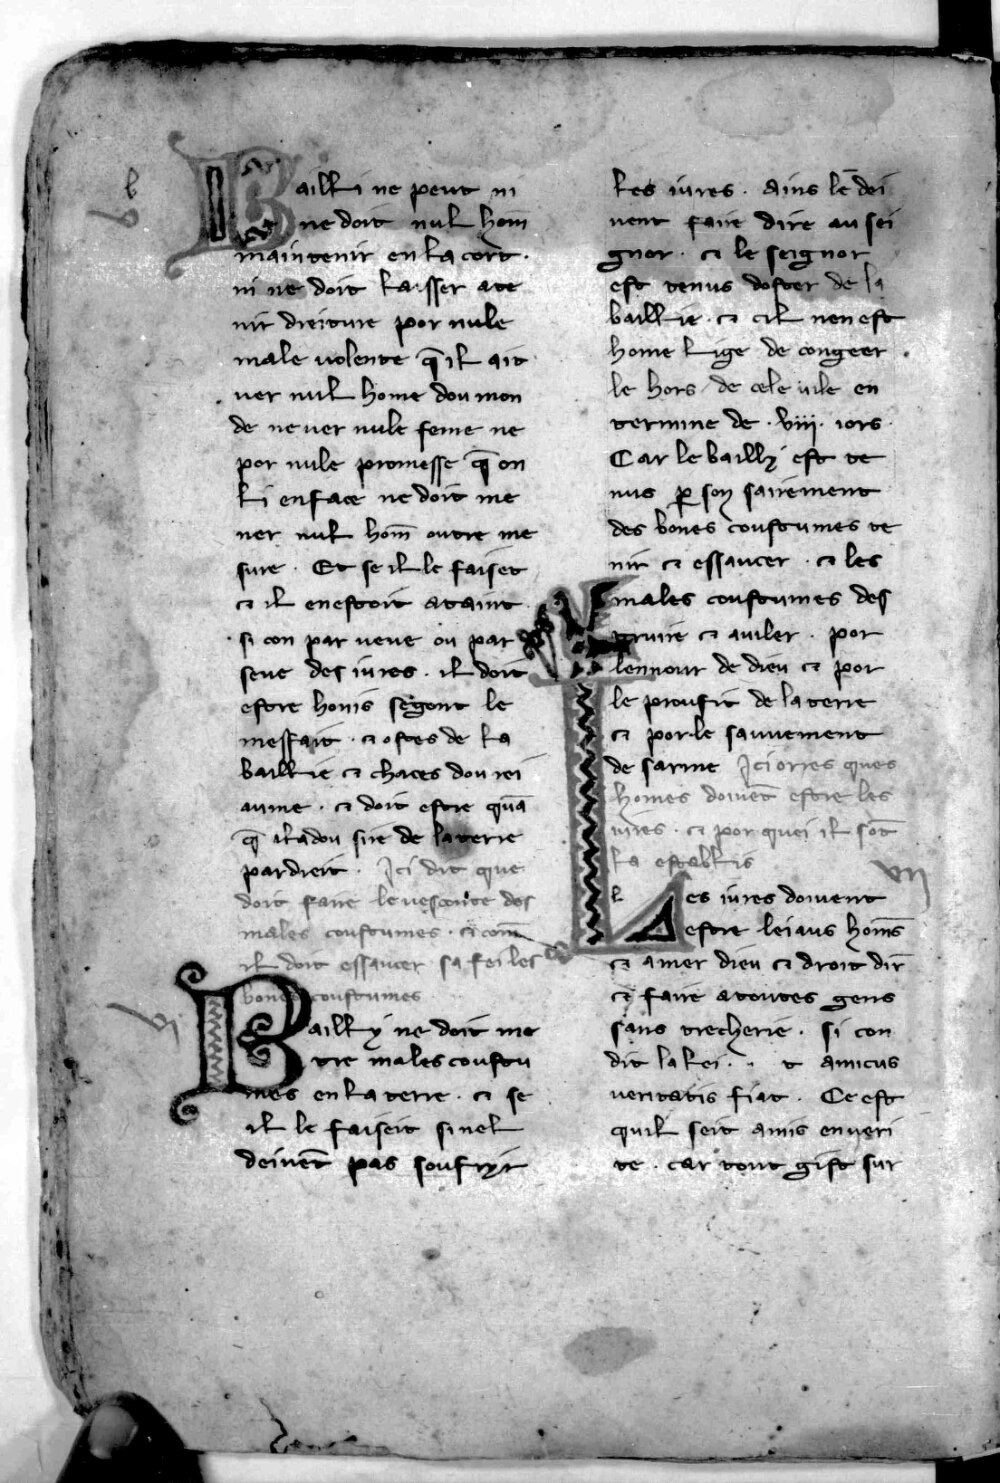 b
v
Bailli ne peut ni
ne doit nul hom̄
maintenir en la cort .
ni ne doit laisser a te
nir dreiture por nule
male volente q̄ il ait
ver nul home dou mon
de ne ver nule feme ne
por nule promesse q̄ on
li en face ne doit me
ner nul hom̄ outre me
sure . Et se il le faiset
⁊ il en estoit ataint
si con par veue ou par
seue des iures . il doit
estre honis segont le
mesfait . ⁊ ostes de la
baillie ⁊ chaces dou rei
aume . ⁊ doit estre quā
q̄ il a dou sire de la terre
par dreit . Ici dit que
doit faire le vesconte des
males coustumes . ⁊ com̄
il doit essaucer sa fei les
bones coustumes
vi
Bailly ne doit me
tre males coustu
mes en la terre . ⁊ se
il le faiseit si nel
deivēt pas soufryr
les iures . ains le dei
vent faire dire au sei
gnor . ⁊ le seignor
est tenus doster de la
baillie . ⁊ cil nen est
home lige de congeer .
le hors de cele vile en
termine de . viii . iors .
Car le bailly est te
nus ꝑ son sairement
des bones coustumes te
nir ⁊ essaucer . ⁊ les
males coustumes des
truire ⁊ aviler . por
lennour de dieu ⁊ por
le proufit de la terre
⁊ por le sauvement
de sarme Ici orres ques
homes doivēt estre les
iures . ⁊ por quei il sōt
la establis
vii
l
Les iures doivent
estre leiaus hom̄s
⁊ amer dieu ⁊ droit dir̄
⁊ faire a toutes gens
sans trecherie . si con
dit la lei . . t amicus
veritatis fiat . Ce est
quil seit amis en veri
te . car tout gist sur